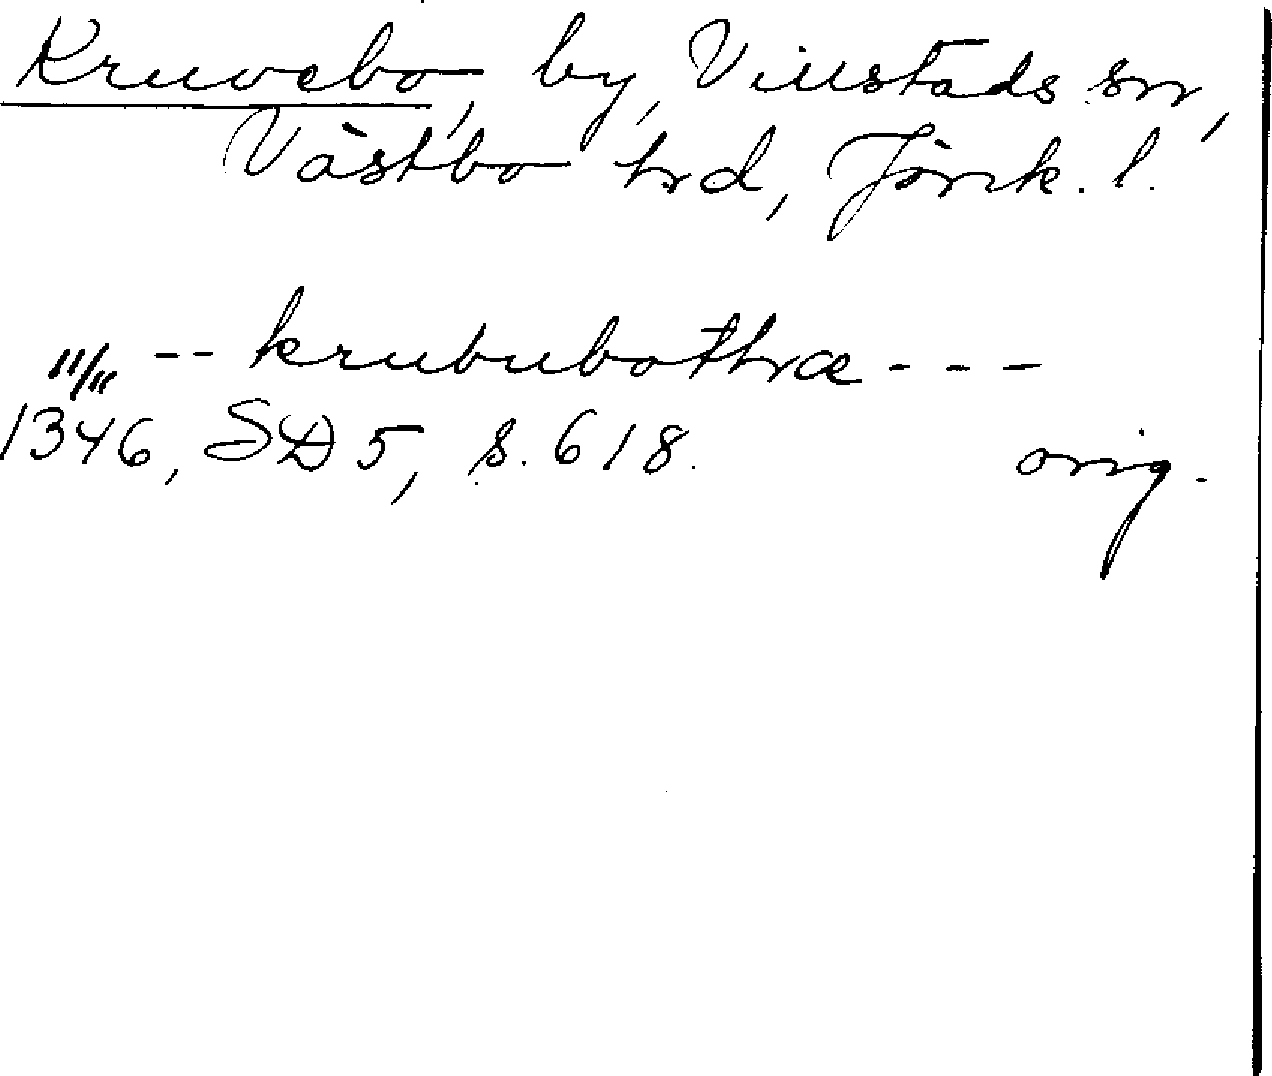 Kruvebo, by, Villstads sn,
Västbo hd, Jönk. l.
11/11 -- krububothræ - - -
1346, SD 5, s. 618. orig.